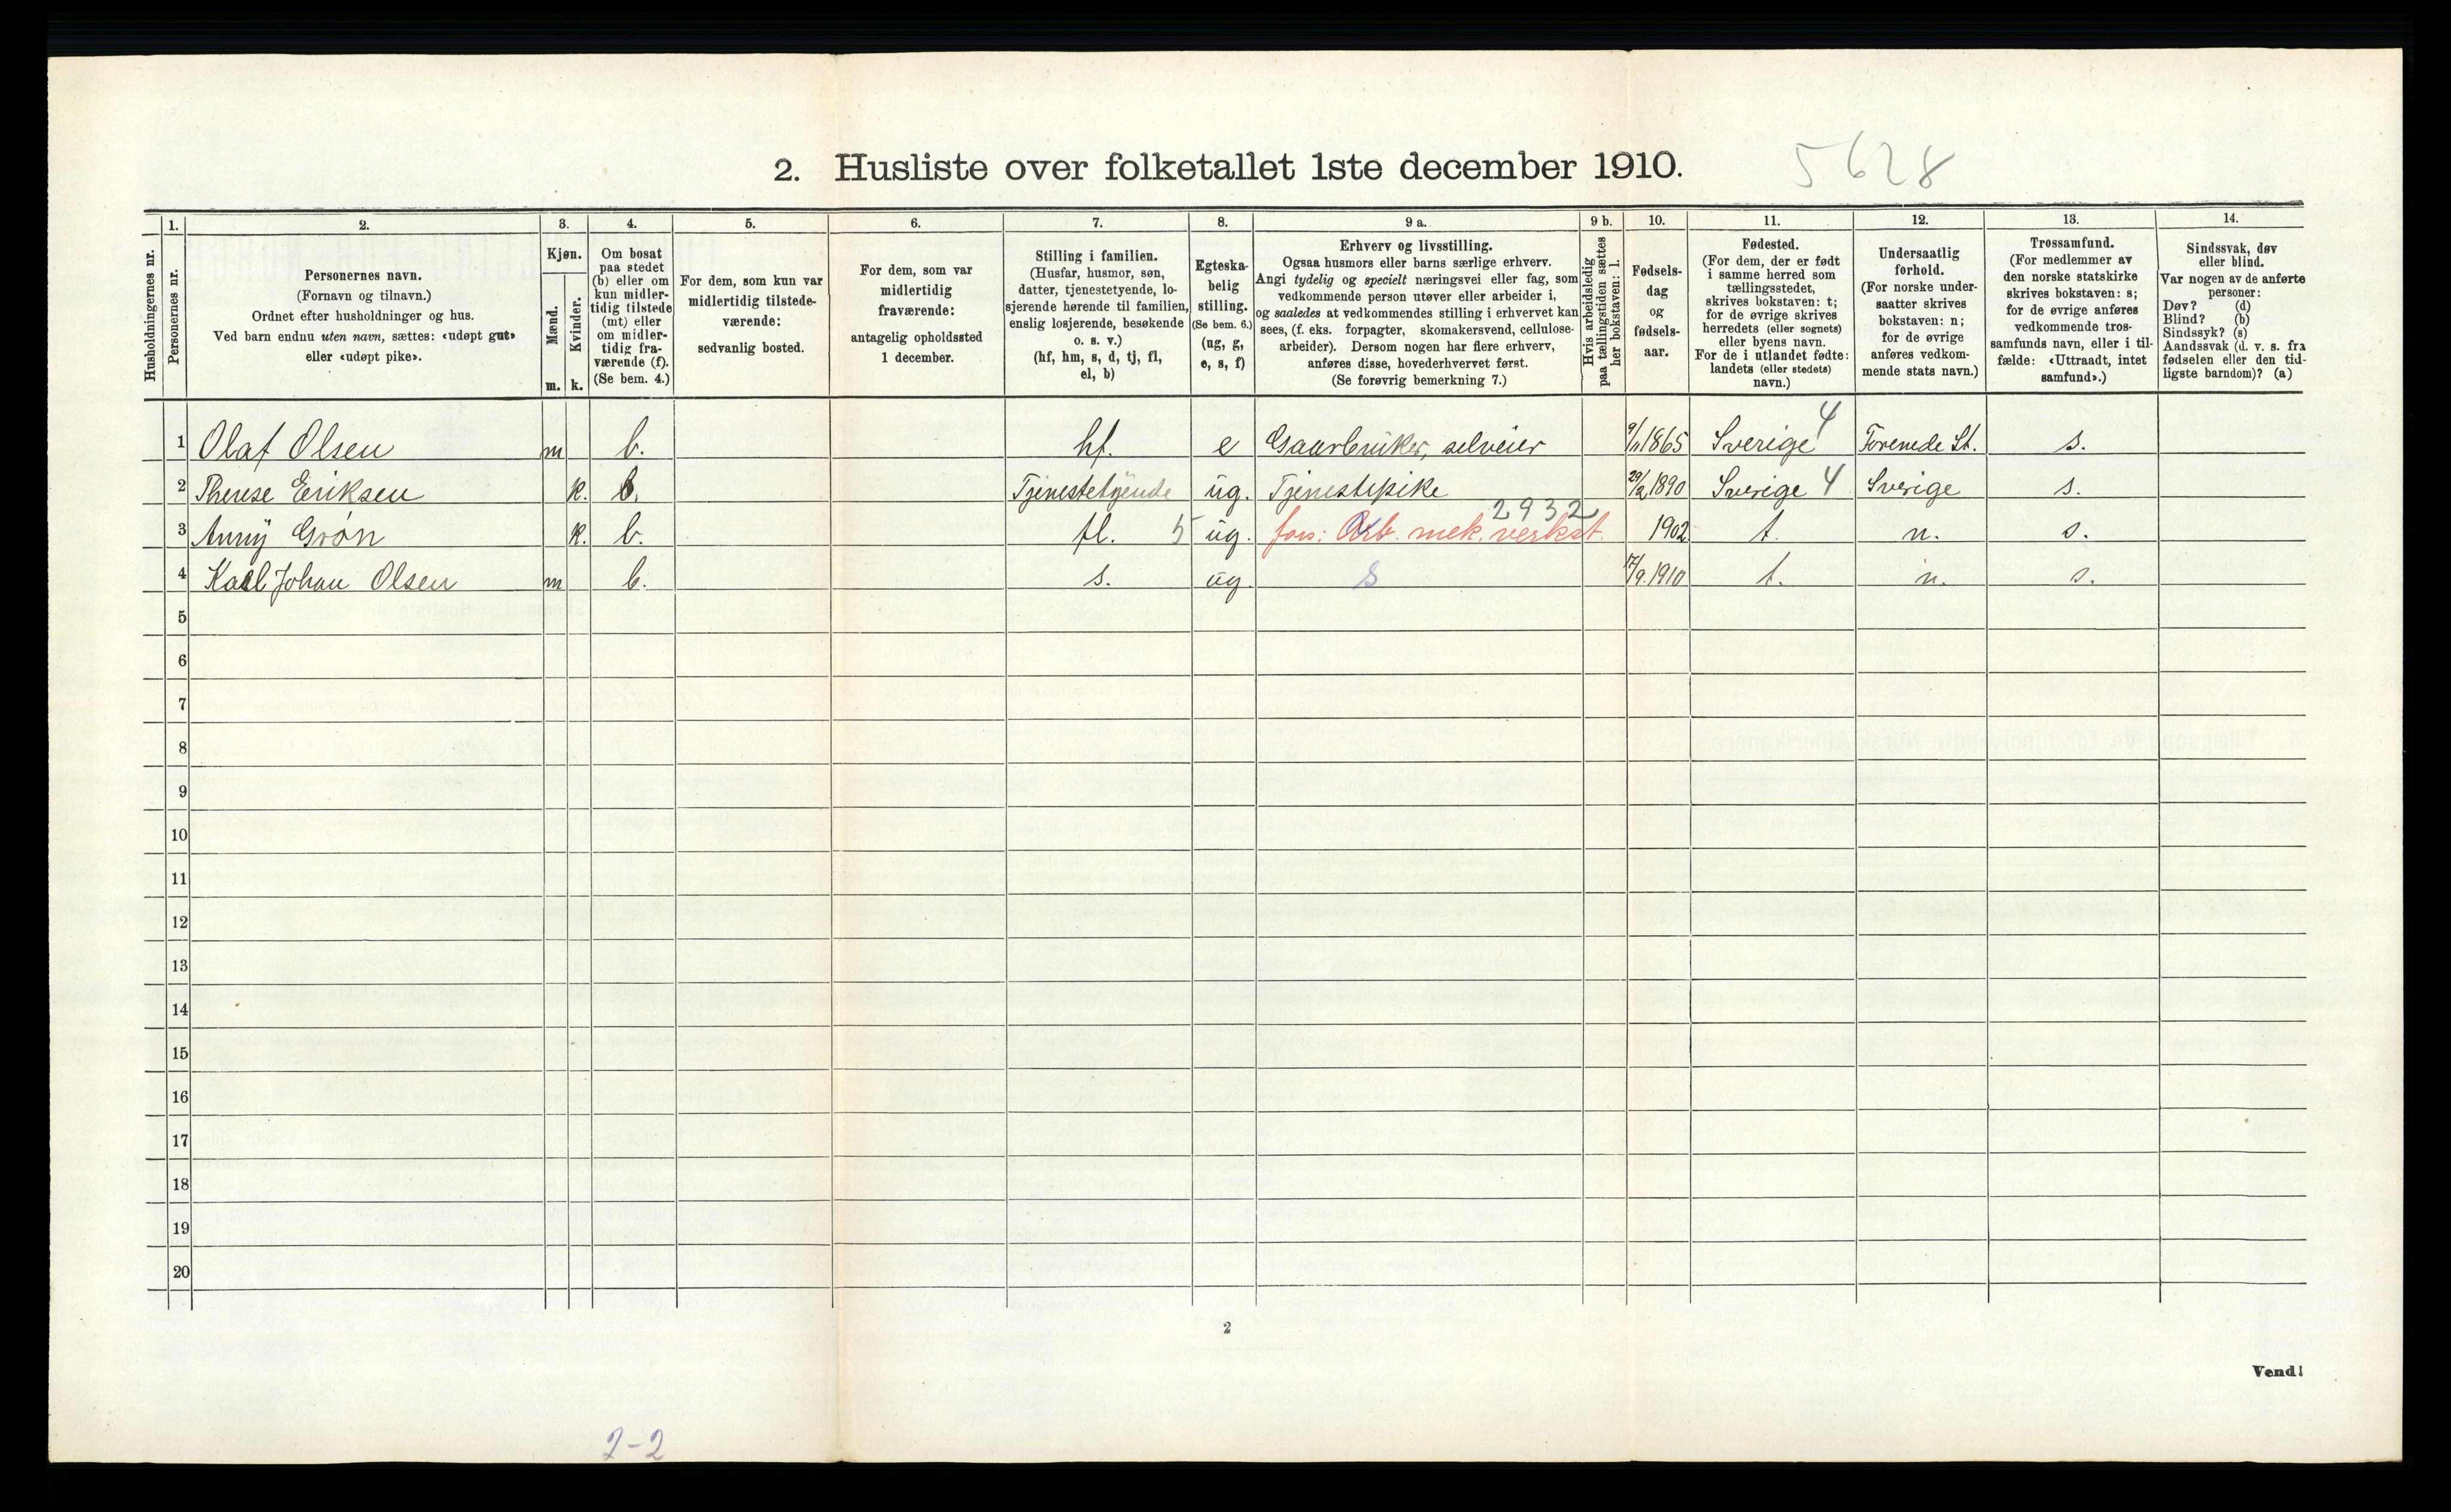 2. Husliste over folketallet 1ste december 1910.
5628
Husholdningernes nr.
1.
Personernes nr.
2.
Personernes navn.
(Fornavn og tilnavn.)
Ordnet efter husholdninger og hus.
Ved barn endnu uten navn, sættes: «udøpt gut»
eller «udøpt pike».
3.
Kjøn.
Mænd.
Kvinder.
m. k.
4.
Om bosat
paa stedet
(b) eller om
kun midler-
tidig tilstede
(mt) eller
om midler-
tidig fra-
værende (f).
(Se bem. 4.)
5.
For dem, som kun var
midlertidig tilstede-
værende:
sedvanlig bosted.
6.
For dem, som var
midlertidig
fraværende:
antagelig opholdssted
1 december.
7.
Stilling i familien.
(Husfar, husmor, søn,
datter, tjenestetyende, lo-
sjerende hørende til familien,
enslig losjerende, besøkende
o. s. v.)
(hf, hm, s, d, tj, fl,
el, b)
8.
Egteska-
belig
stilling.
(Se bem. 6.)
(ug, g,
e, s, f)
9 a.
Erhverv og livsstilling.
Ogsaa husmors eller barns særlige erhverv.
Angi tydelig og specielt næringsvei eller fag, som
vedkommende person utøver eller arbeider i,
og saaledes at vedkommendes stilling i erhvervet kan
sees, (f. eks. forpagter, skomakersvend, cellulose-
arbeider). Dersom nogen har flere erhverv,
anføres disse, hovederhvervet først.
(Se forøvrig bemerkning 7.)
9 b.
Hvis arbeidsledig
paa tællingstiden sættes
her bokstaven: l.
10.
Fødsels-
dag
og
fødsels-
aar.
11.
Fødested.
(For dem, der er født
i samme herred som
tællingsstedet,
skrives bokstaven: t;
for de øvrige skrives
herredets (eller sognets)
eller byens navn.
For de i utlandet fødte:
landets (eller stedets)
navn.)
12.
Undersaatlig
forhold.
(For norske under-
saatter skrives
bokstaven: n;
for de øvrige
anføres vedkom-
mende stats navn.)
13.
Trossamfund.
(For medlemmer av
den norske statskirke
skrives bokstaven: s;
for de øvrige anføres
vedkommende tros-
samfunds navn, eller i til-
fælde: «Uttraadt, intet
samfund».)
14.
Sindssvak, døv
eller blind.
Var nogen av de anførte
personer:
Døv? (d)
Blind? (b)
Sindssyk? (s)
Aandssvak (d. v. s. fra
fødselen eller den tid-
ligste barndom)? (a)
1 Olaf Olsen m b. hf. e Gaarbruker, selveier 9/11 1865 Sverige 4 Forenede St. s.
2 Therese Eriksen k. b. Tjenestetyende ug. Tjenestepike 29/2 1890 Sverige 4 Sverige s.
3 Anny Grøn k. b. fl. 5 ug. fors: Arb. mek. verkst. 2932 1902 t. n. s.
4 Karl Johan Olsen m b. s. ug. S 17/9 1910 t. n. s.
5
6
7
8
9
10
11
12
13
14
15
16
17
18
19
20
2
Vend!
2-2